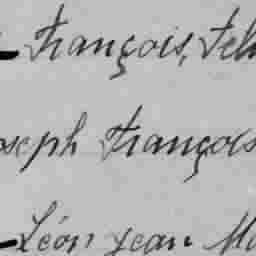 François, Fel
oseph François
Léon Jean Ma